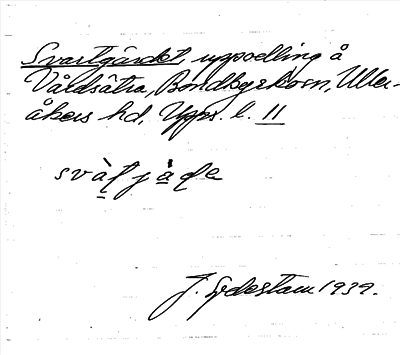 Svartgärdet, uppodling å
Vårdsätra, Bondkyrkosn, Uller-
åkers hd, Upps. l. 11
J. Sydestam 1939.